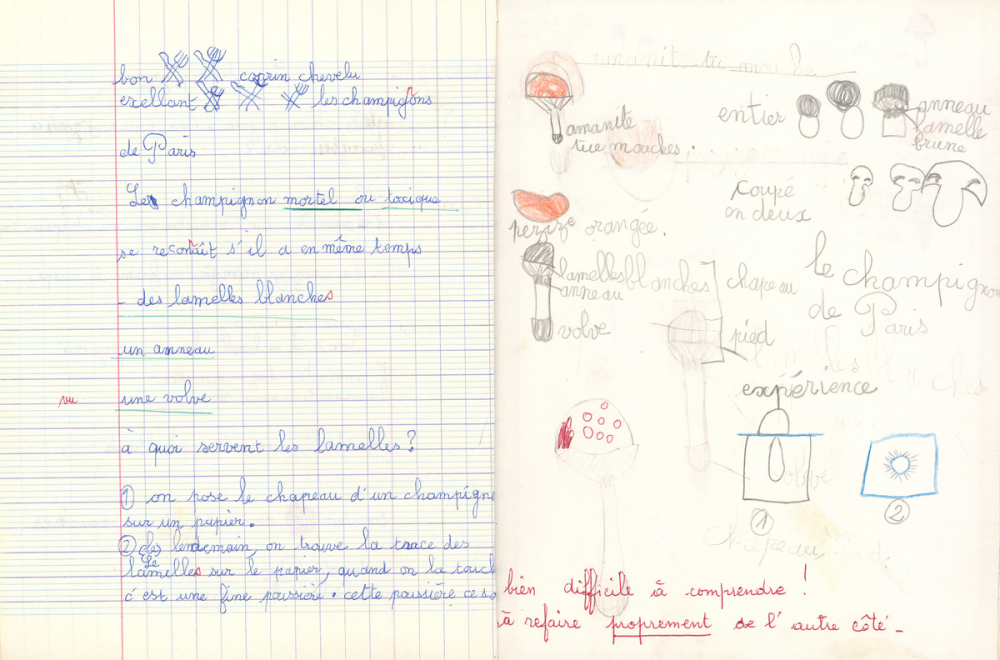 bon coprin chevelu
exellant les champignons
de Paris
Le champignon mortel ou toxique
se reconnaît s'il a en même temps
- des lamelles blanches
un anneau
vu
une volve
à quoi servent les lamelles ?
① on pose le chapeau d'un champign
sur un papier.
② le lendemain, on trouve la trace des
lamelles sur le papier, quand on la touch
c'est une fine poussière. cette poussière ce so
amanite
tue mouches.
entier
anneau
lamelle
brune
coupé
en deux
pezize orangée.
le champignon
de Paris
lamelles blanches
anneau
chapeau
volve
pied
expérience
volve
① ②
chapeau
bien difficile à comprendre !
à refaire proprement de l'autre côté -